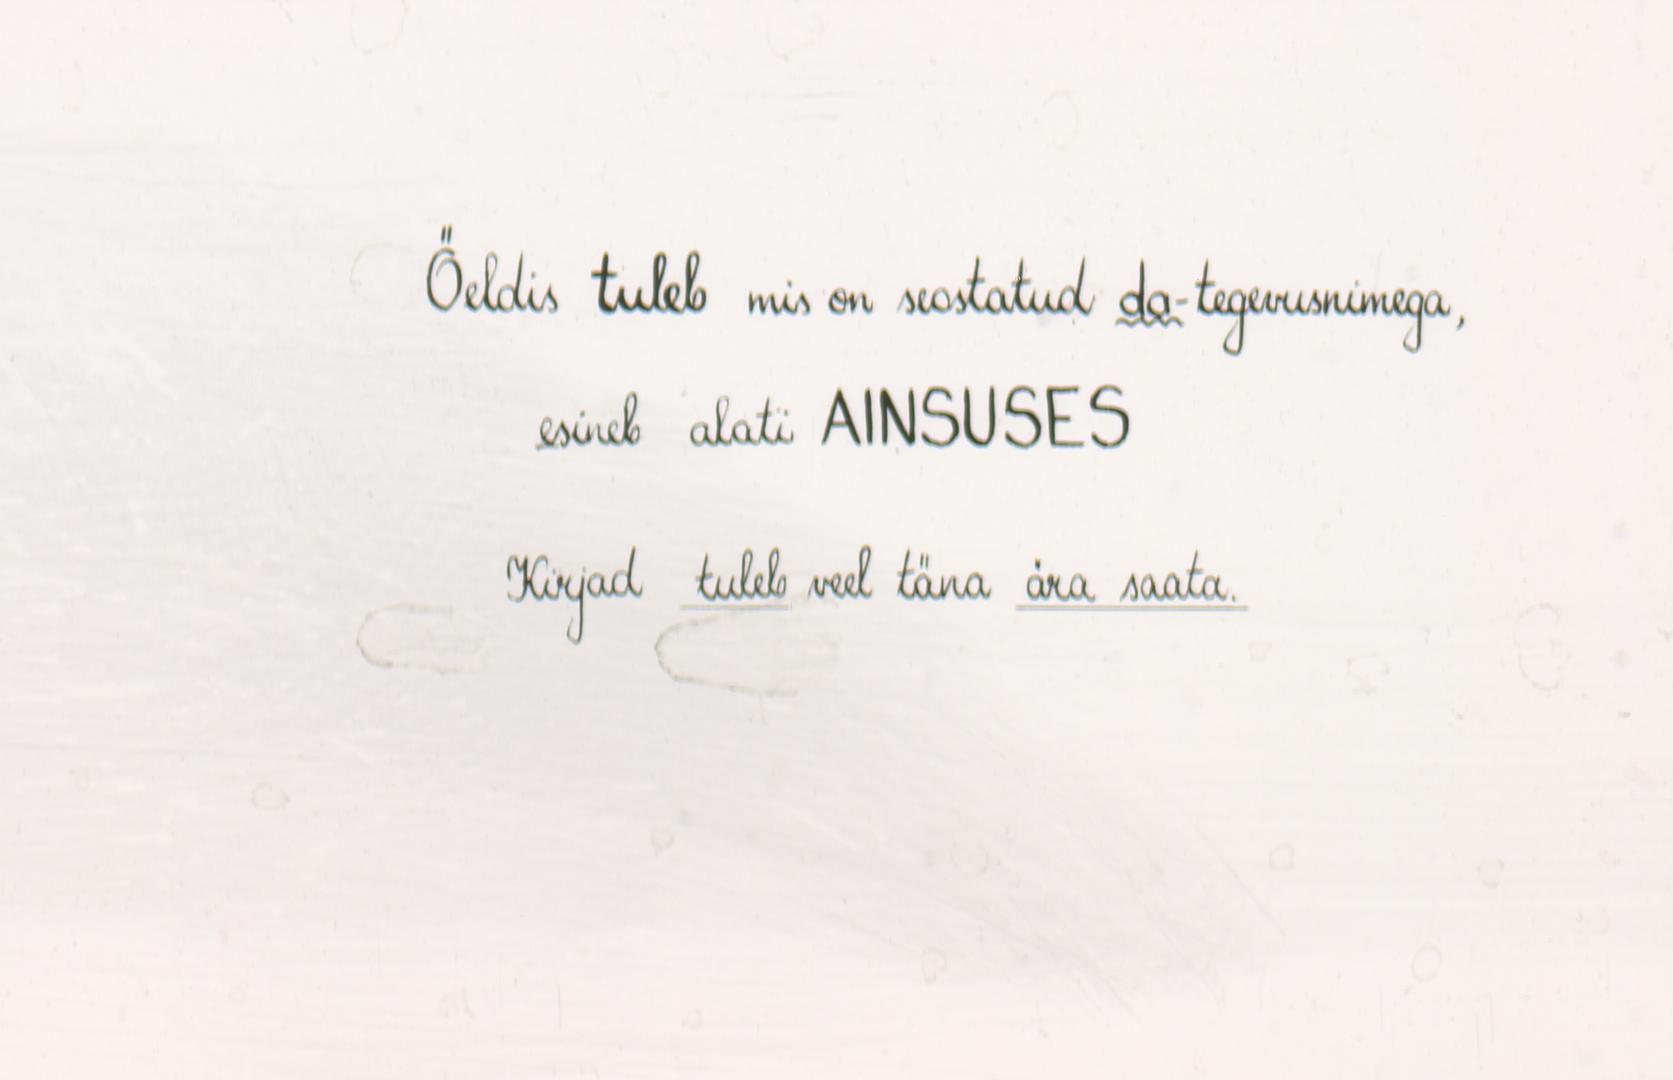 Öeldis tuleb mis on seostatud da-tegevusnimega,
esineb alati AINSUSES
Kirjad tuleb veel täna ära saata.